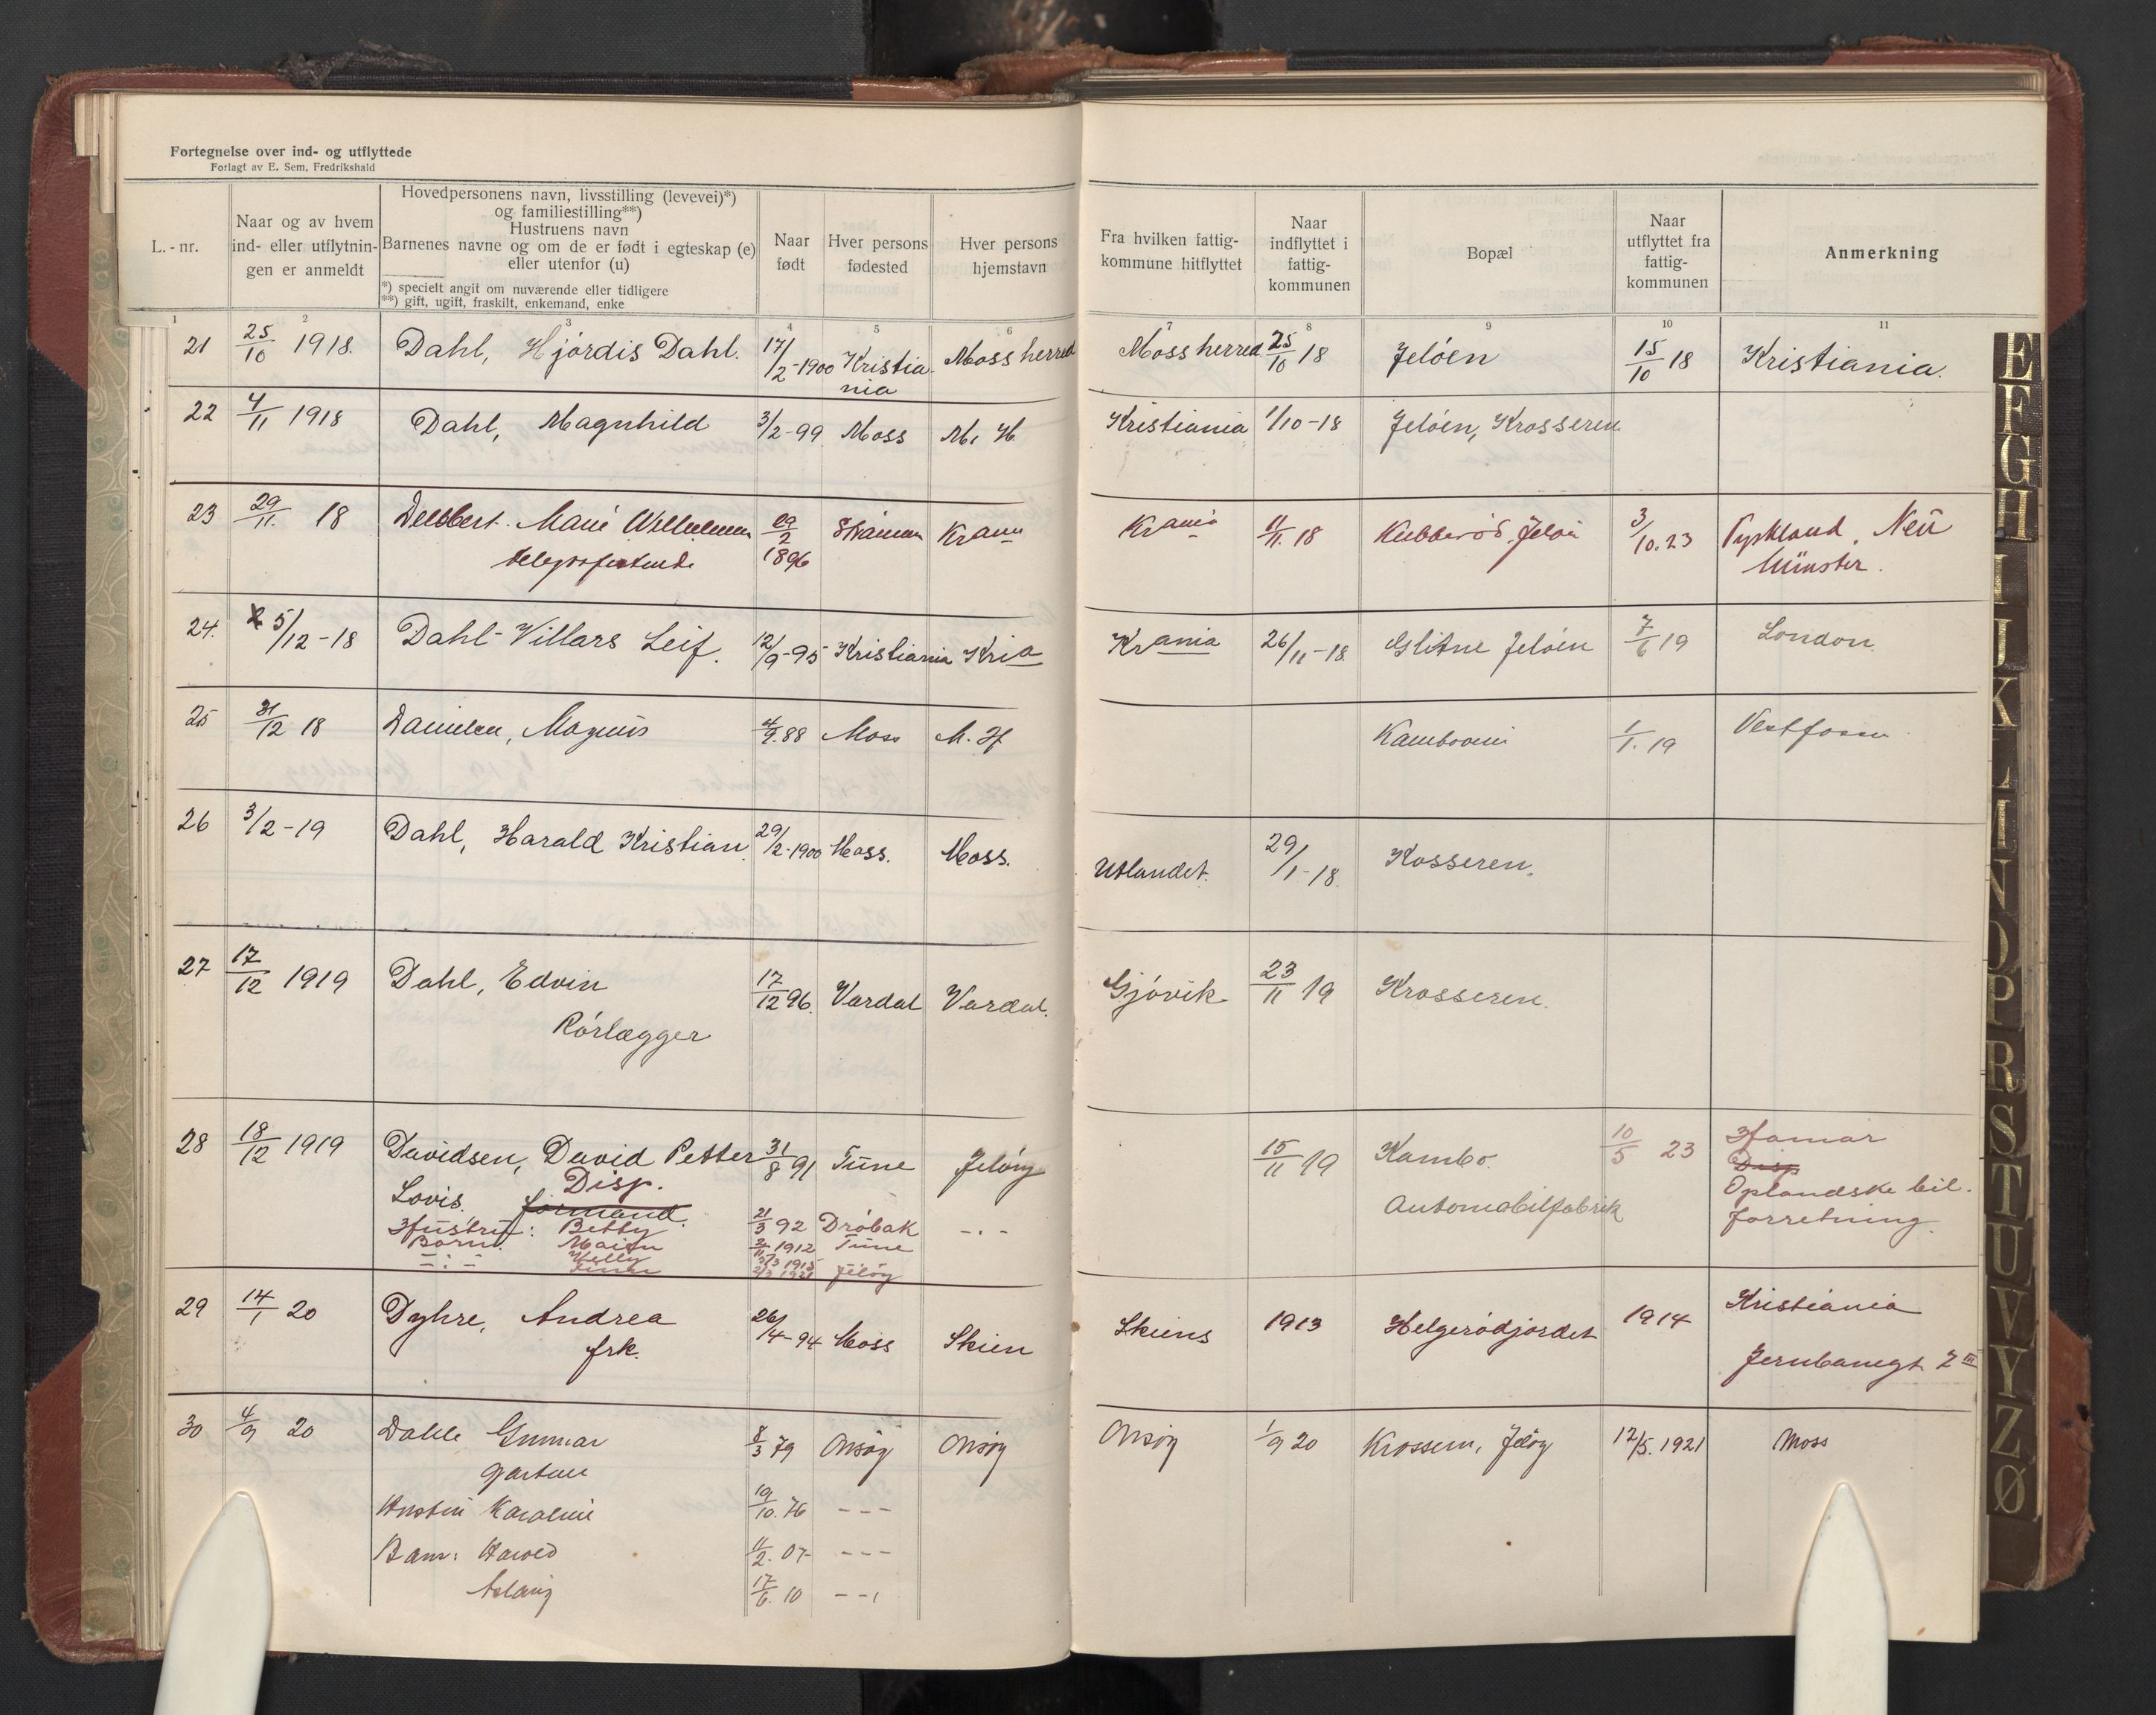 Fortegnelse over ind- og utflyttede
Forlagt av E. Sem, Fredrikshald
L.-nr.
Naar og av hvem
ind- eller utflytnin-
gen er anmeldt
Hovedpersonens navn, livsstilling (levevei)*)
og familiestilling**)
Hustruens navn
Barnenes navne og om de er født i egteskap (e)
eller utenfor (u)
*) specielt angit om nuværende eller tidligere
**) gift, ugift, fraskilt, enkemand, enke
Naar
født
Hver persons
fødested
Hver persons
hjemstavn
Fra hvilken fattig-
kommune hitflyttet
Naar
indflyttet i
fattig-
kommunen
Bopæl
Naar
utflyttet fra
fattig-
kommunen
Anmerkning
1 2 3 4 5 6 7 8 9 10 11
21 25/10 1918. Dahl, Hjórdis Dahl. 17/2-1900 Kristia- Moss herred Moss herred 25/10 18 Jelóen 15/10 18 Kristiania.
nia
22 4/11 1918 Dahl, Magnhild 3/2-99 Moss M. H. Kristiania 1/10-18 Jelóen, Krosseren
23 29/11. 18 Marie 29/2 Krania 11/11. 18 Kubberød, Jeløi 3/10. 23 Tyskland, Neu
1896 Münster.
24. 5/12-18 Dahl-Villars Leif. 12/9-95 Kristiania Kria Krania 26/11-18 Glitne Jelóen 7/6 19 London.
25 31/12 18 Danielsen, Magnus 4/9.88 Moss M. H Kambo 1/1. 19 Vestfossen
26 3/2-19 Dahl, Harald Kristian 29/2-1900 Moss. Moss. Utlandet. 29/1-18. Kosseren.
27 17/12 1919 Dahl, Edvin 17/12 96. Vardal Vardal. Gjóvik 23/11 19 Krosseren.
Rórlægger
28 18/12 1919 Davidsen, David Petter 31/8 91 Tune Jelóy 15/11 19 Kambo. 10/5 23 Hamar
Disp. Disp
Lovis. formand. Automobilfabrik Oplandske bil.
Hustru: Betty 21/3 92 Dróbak -.- forretning.
Barn: 1912 Tune
-:- Willy 1915
1921 Jelóy
29 14/1 20 Dyhre, Andrea 26/4-94 Moss Skien Skiens 1913 Helgeródjordet 1914 Kristiania
frk. Jernbanegt 7 III
30 4/9 20 Dahle Gunnar 8/3 79 Onsøy Onsøy Onsøy 1/9 20 Krosseren, Jeløy 12/5. 1921 Moss
Gartner
Hustru Karoline 19/10. 76 ---
Barn: Harald 11/2. 07 ---
Aslaug 17/6. 10 --,
E
F
G
H
I
J
K
L
M
N
O
P
R
S
T
U
V
Y
Z
Ø